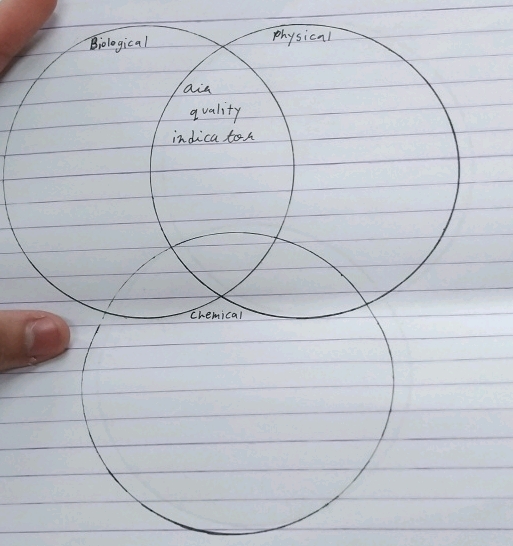 Biological
Physical
air
quality
indicator
Chemical